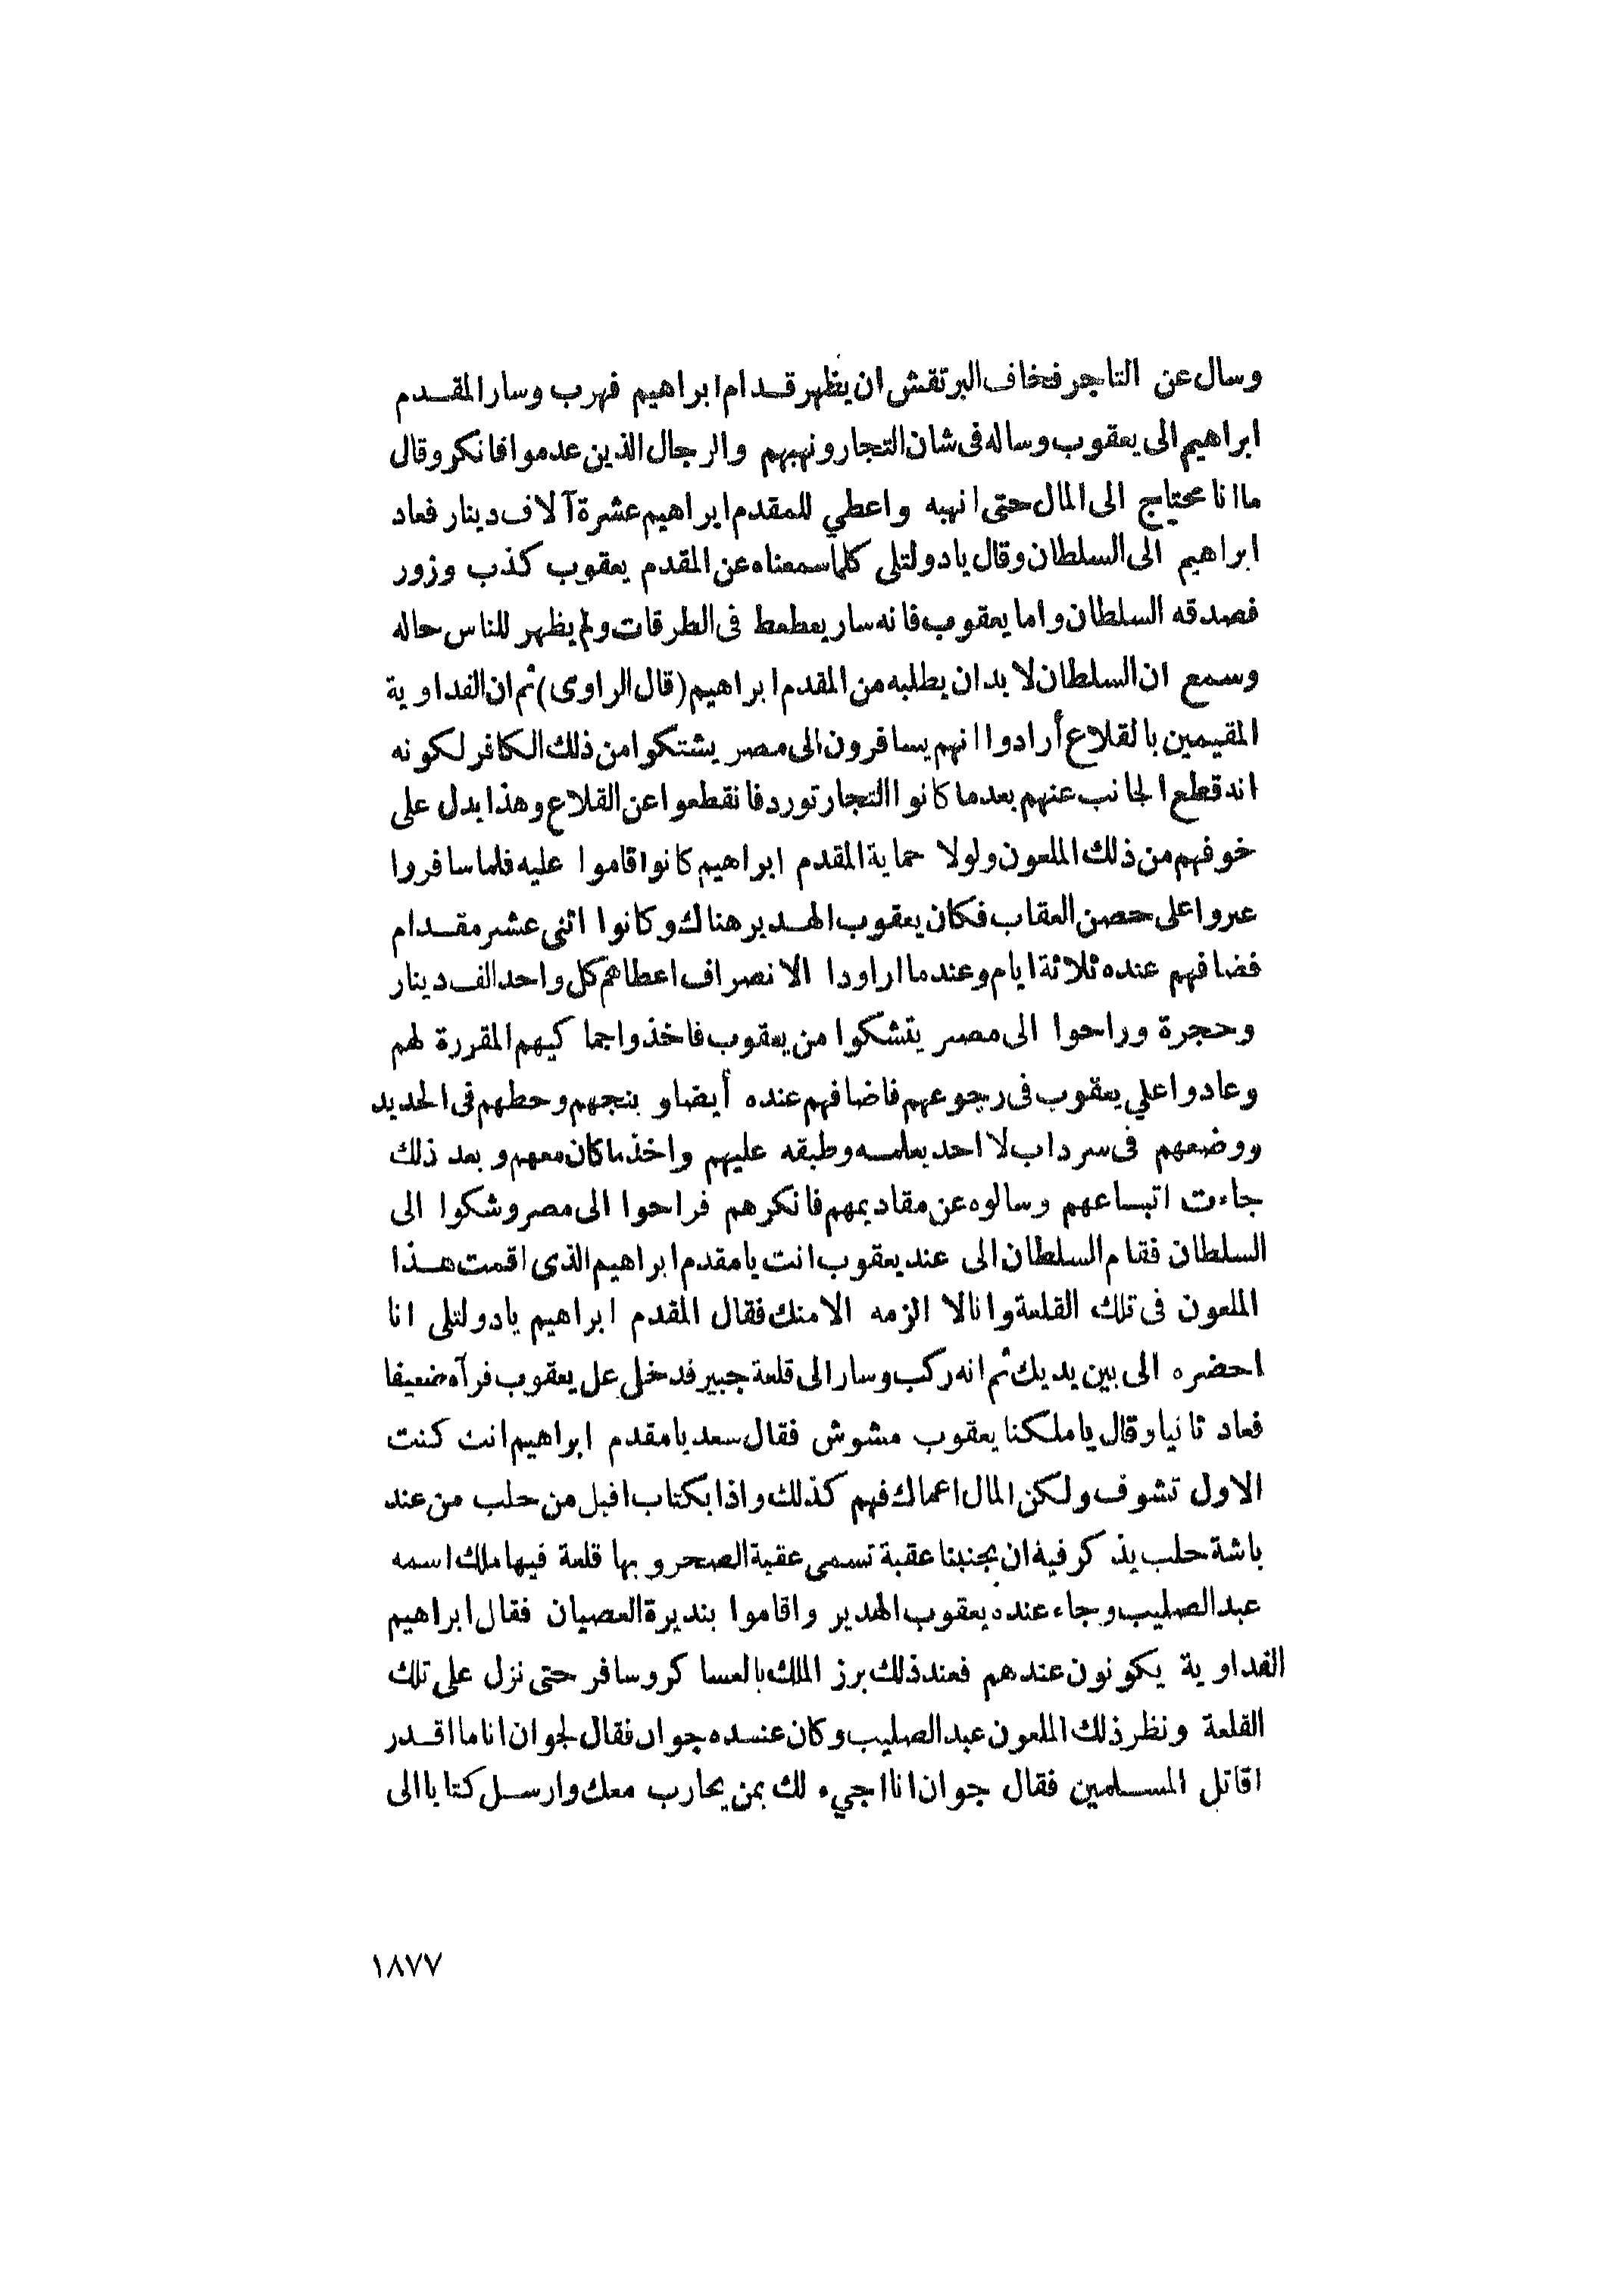 وسال عن التاجر فخاف البرتقش ان يظهر قدام ابراهيم فهرب وسار المقدم
ابراهيم الى يعقوب وساله فى شان التجار ونهبهم والرجال الذين عدموا فانكر وقال
ما انا محتاج الى المال حتى انهبه واعطي للمقدم ابراهيم عشرة آلاف دينار فعاد
ابراهيم الى السلطان وقال يا دولتلى كلما سمعناه عن المقدم يعقوب كذب وزور
فصدقه السلطان واما يعقوب فانه سار يعطعط فى الطرقات ولم يظهر للناس حاله
وسمع ان السلطان لا بد ان يطلبه من المقدم ابراهيم (قال الراوى) ثم ان الفداوية
المقيمين بالقلاع أرادوا انهم يسافرون الى مصر يشتكوا من ذلك الكافر لكونه
اندقطع الجانب عنهم بعدما كانوا التجار تورد فانقطعوا عن القلاع وهذا يدل على
خوفهم من ذلك الملعون ولولا حماية المقدم ابراهيم كانوا قاموا عليه فلما سافروا
عبروا على حصن العقاب فكان يعقوب الهدير هناك وكانوا اثنى عشر مقدام
فضافهم عنده ثلاثة ايام وعندما اراودا الانصراف اعطاهم كل واحد الف دينار
وحجرة وراحوا الى مصر يتشكوا من يعقوب فاخذوا جماكيهم المقررة لهم
وعادوا علي يعقوب فى رجوعهم فاضافهم عنده أيضاو بنجهم وحطهم فى الحديد
ووضعهم فى سرداب لا احد يعلمه وطبقه عليهم واخذ ما كان معهم و بعد ذلك
جاءت اتباعهم وسالوه عن مقاديمهم فانكرهم فراحوا الى مصر وشكوا الى
السلطان فقام السلطان الى عند يعقوب انت يا مقدم ابراهيم الذى اقمت هذا
الملعون فى تلك القلعة وانالا الزمه الا منك فقال المقدم ابراهيم يا دولتلى انا
احضره الى بين يديك ثم انه ركب وسار الى قلعة جبير فدخل عل يعقوب فرآه ضعيفا
فعاد ثانيا وقال يا ملكنا يعقوب مشوش فقال سعد يا مقدم ابراهيم انت كنت
الاول تشوف ولكن المال اعماك فهم كذلك واذا بكتاب اقبل من حلب من عند
باشة حلب يذكر فيه ان بجنبنا عقبة تسمى عقبة الصحر و بها قلعة فيها ملك اسمه
عبد الصليب وجاء عنده يعقوب الهدير واقاموا بنديرة العصيان فقال ابراهيم
الفداوية يكونون عندهم فعند ذلك برز الملك بالعساكر وسافر حتى نزل على تلك
القلعة ونظر ذلك الملعون عبد الصليب وكان عنده جوان فقال لجوان انا ما اقدر
اقاتل المسلمين فقال جوان انا اجيء لك بمن يحارب معك وارسل كتابا الى
١٨٧٧